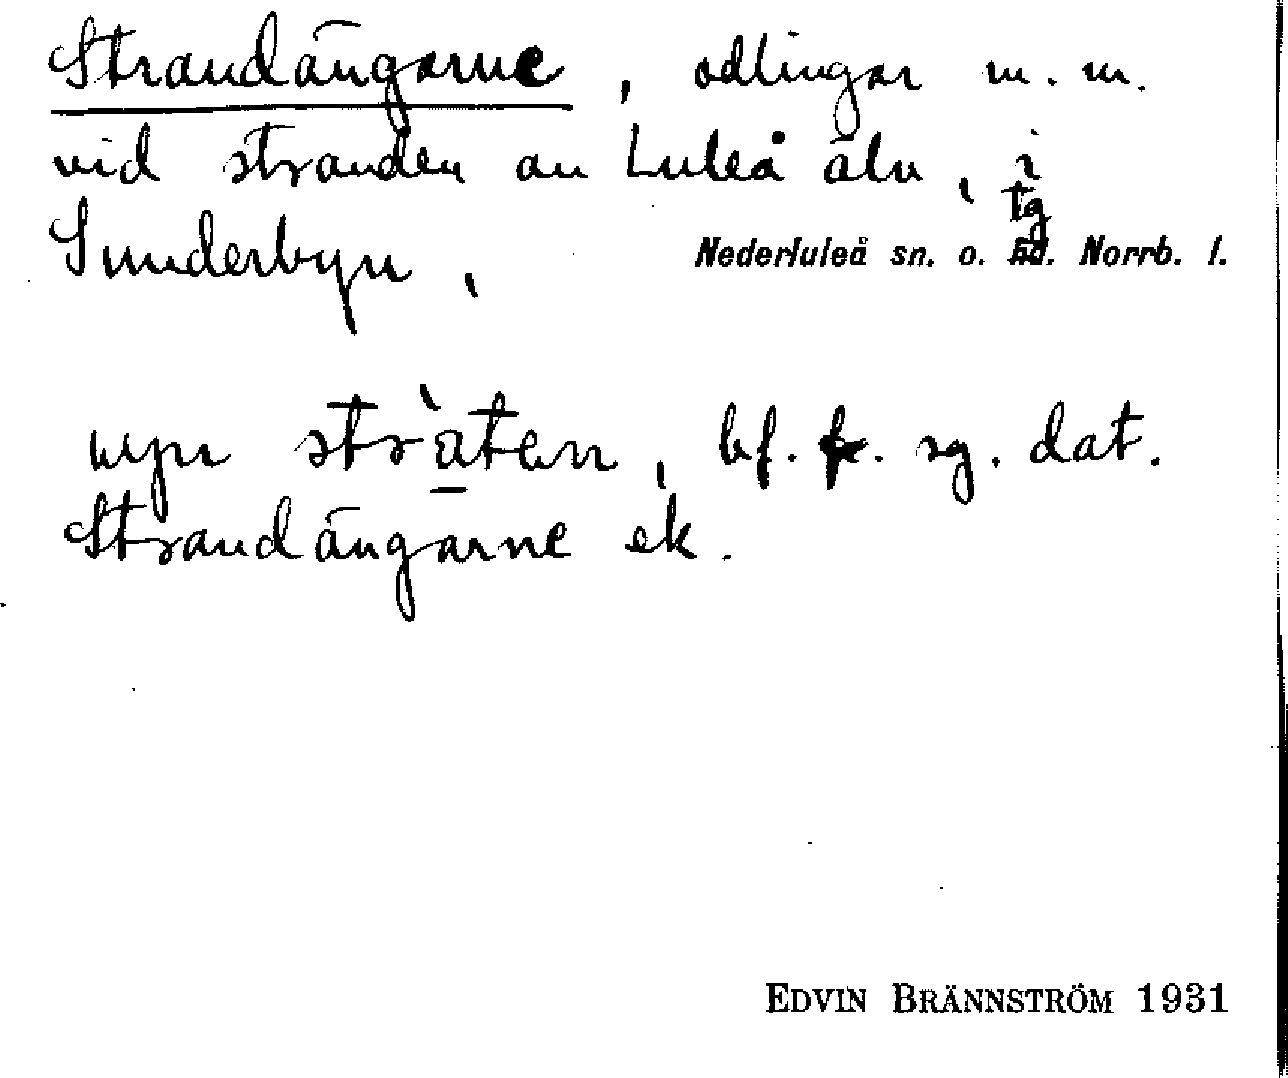 Strandängarne, odlingar m. m.
vid stranden av Luleå älv, i
Sunderbyn, Nederluleå sn. o. tg. Norrb. l.
bf. sg. dat.
Strandängarne ek.
EDVIN BRÄNNSTRÖM 1931